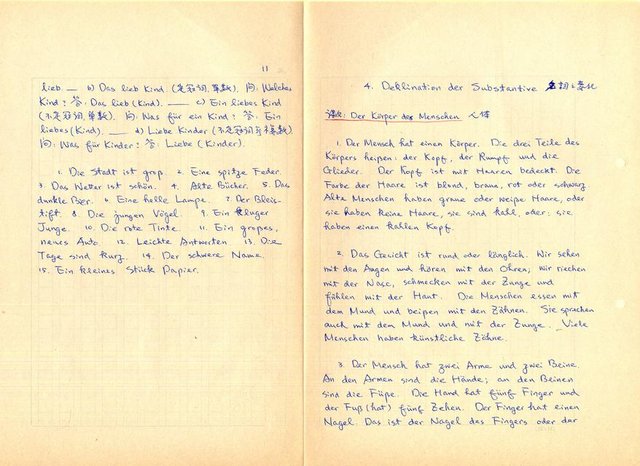 11
lieb — b) Das lieb Kind. (定冠词, 单数). 问: Welches
Kind? 答: Das lieb (Kind). — c) Ein liebes Kind
(不定冠词, 单数). 问: Was für ein Kind? 答: Ein
liebes (Kind). — d) Liebe Kinder
问: Was für Kinder? 答: Liebe (Kinder).
1. Die Stadt ist grop. 2. Eine spitze Feder.
3. Das Wetter ist schön. 4. Alte Bücher. 5. Das
dunkle Bier. 6. Eine helle Lampe. 7. Der Bleis-
tift 8. Die jungen Vögel. 9. Ein kluger
Junge. 10. Die rote Tinte. 11. Ein gropes,
neues Auto. 12. Leichte Antworten 13. Die
Tage sind kurz. 14. Der schwere Name.
15. Ein kleines Stück Papier.
4. Deklination der Substantive
课文: Der Körper des Menschen 人体
1. Der Mensch hat einen Körper. Die drei Teile des
Körpers heipen: der Kopf, der Rumpf und die
Glieder. Der Kopf ist mit Haaren bedeckt. Die
Farbe der Haare ist blond, braun, rot oder schwarz.
Alte Menschen haben graue oder weipe Haare, oder
sie haben keine Haare, sie sind kahl, oder: sie
haben einen kahlen Kopf.
2. Das Gesicht ist rund oder länglich. Wir sehen
mit den Augen und hören mit den Ohren; wir riechen
mit der Nase, schmecken mit der Zunge und
fühlen mit der Haut. Die Menschen essen mit
dem Mund und beipen mit den Zähnen. Sie sprechen
auch mit dem Mund und mit der Zunge. Viele
Menschen haben künstliche Zähne.
3. Der Mensch hat zwei Arme und zwei Beine.
An den Armen sind die Hände; an den Beinen
sind die Füpe. Die Hand hat fünf Finger und
der Fuß (hat) fünf Zehen. Der Finger hat einen
Nagel. Das ist der Nagel des Fingers oder der